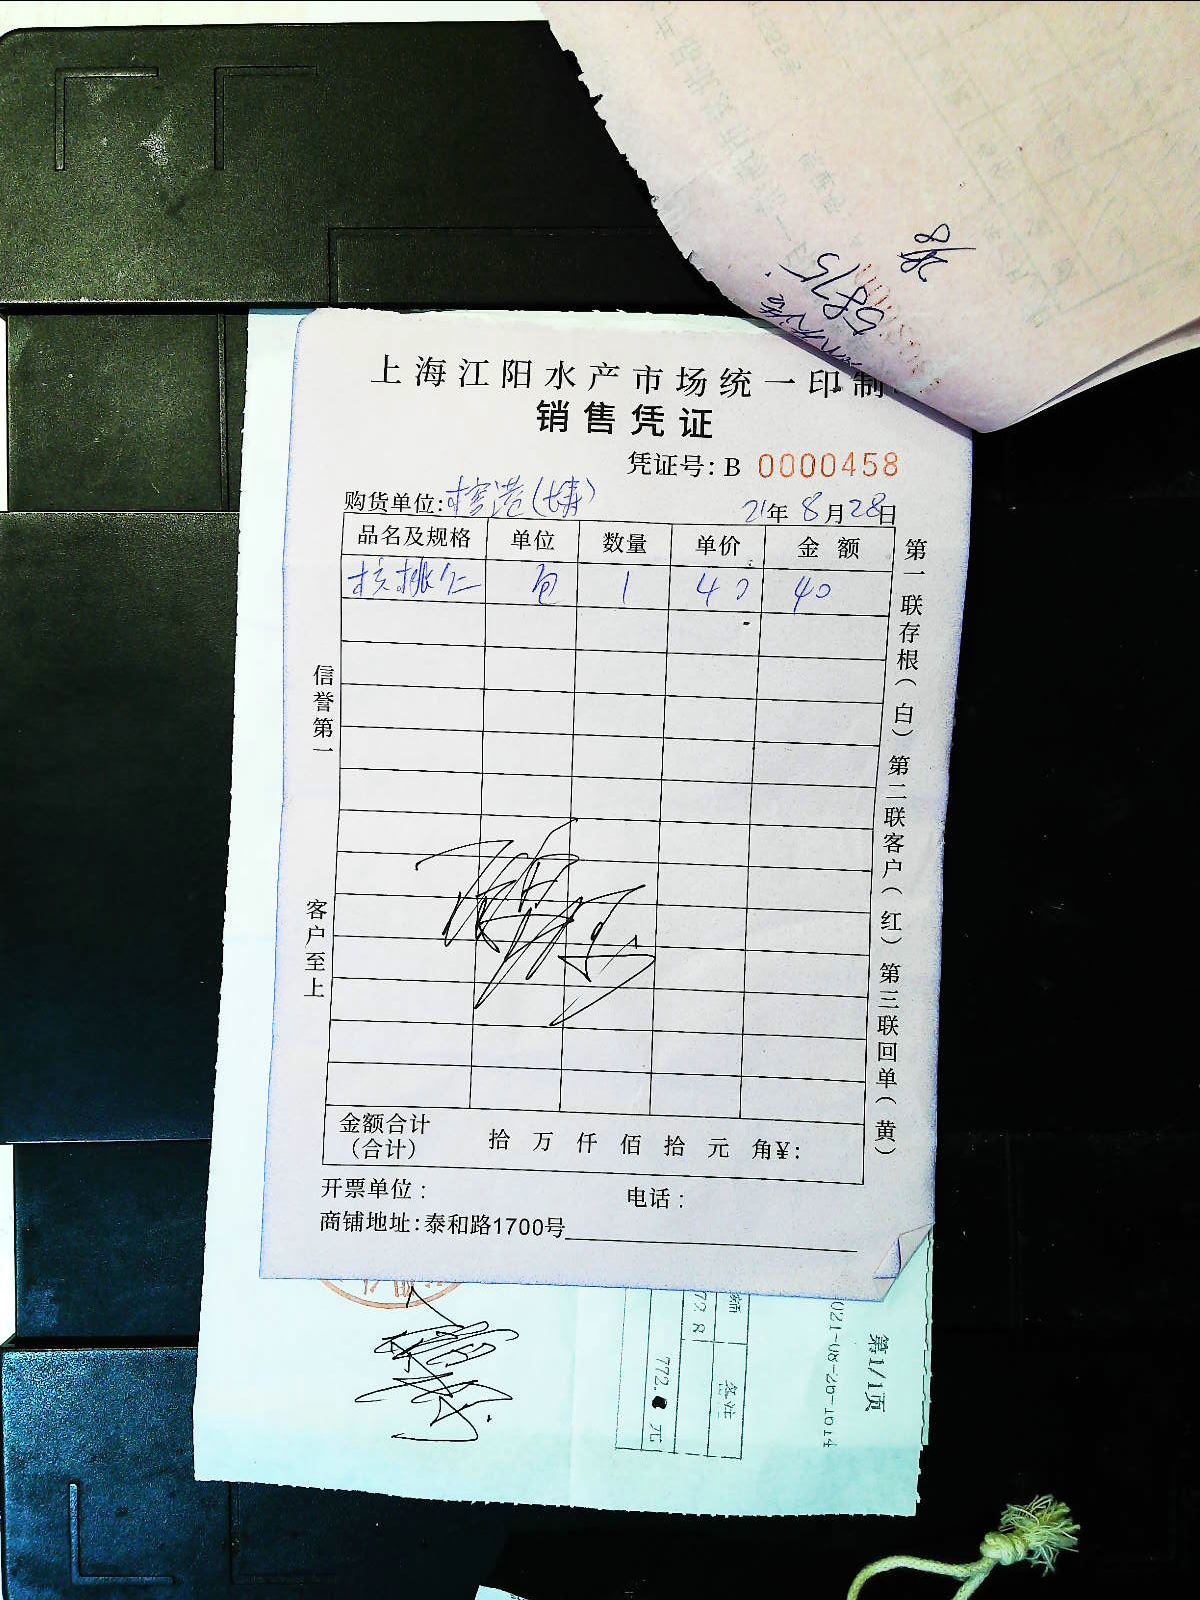 上海江阳水产市场统一印制
销售凭证
凭证号：B 0000458
购货单位： 21年8月28日
品名及规格 单位 数量 单价 金额
核桃仁 包 1 40 40
信誉第一
客户至上
第一联存根（白）第二联客户（红）第三联回单（黄）
金额合计
（合计） 拾 万 仟 佰 拾 元 角¥：
开票单位： 电话：
商铺地址：泰和路1700号
第1/1页
备注
772.
元
72.8
5875